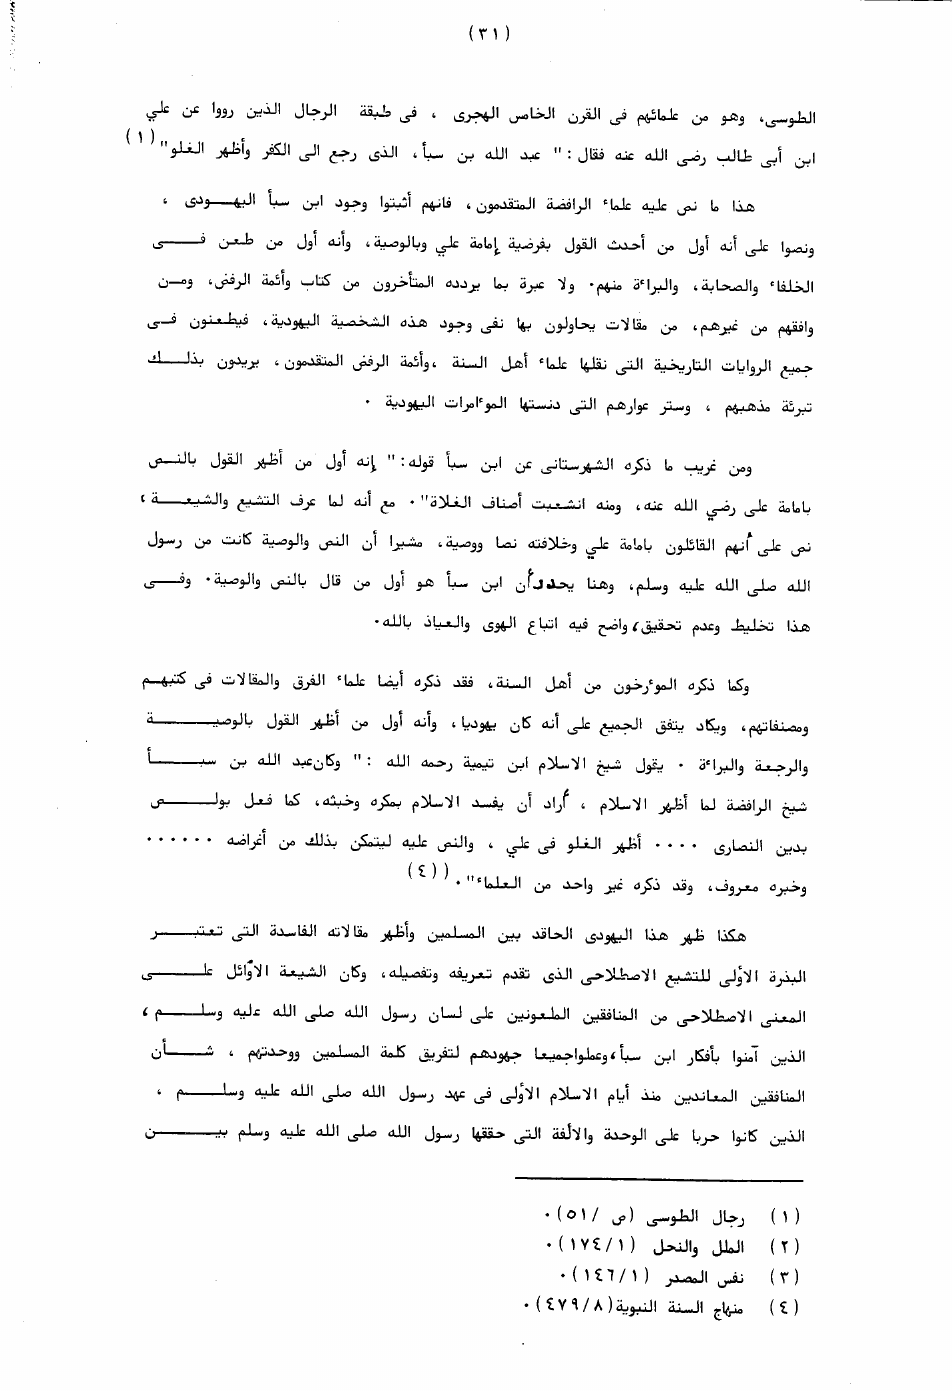 (٣١)
الطوسى، وهو من علمائهم فى القرن الخامس الهجرى ، فى طبقة الرجال الذين رووا عن علي
ابن أبى طالب رضى الله عنه فقال : " عبد الله بن سبأ، الذى رجع الى الكفر وأظهر الغلو" (١)
هذا ما نص عليه علماء الرافضة المتقدمون، فانهم أثبتوا وجود ابن سبأ اليهـــودى ،
ونصوا على أنه أول من أحدث القول بفرضية إمامة علي وبالوصية، وأنه أول من طعن فـــــى
الخلفاء والصحابة، والبراءة منهم. ولا عبرة بما يردده المتأخرون من كتاب وأئمة الرفض، ومــن
وافقهم من غيرهم، من مقالات يحاولون بها نفى وجود هذه الشخصية اليهودية، فيطعنون فــى
جميع الروايات التاريخية التى نقلها علماء أهل السنة ،وأئمة الرفض المتقدمون، يريدون بذلــــك
تبرئة مذهبهم ، وستر عوارهم التى دنستها الموءامرات اليهودية .
ومن غريب ما ذكره الشهرستانى عن ابن سبأ قوله: " إنه أول من أظهر القول بالنــص
بامامة على رضي الله عنه، ومنه انشعبت أصناف الغلاة". مع أنه لما عرف التشيع والشيعـــــة ،
نص على أنهم القائلون بامامة علي وخلافته نصا ووصية، مشيرا أن النص والوصية كانت من رسول
الله صلى الله عليه وسلم، وهنا يحدد أن ابن سبأ هو أول من قال بالنص والوصية. وفـــى
هذا تخليط وعدم تحقيق، واضح فيه اتباع الهوى والعياذ بالله.
وكما ذكره الموءرخون من أهل السنة، فقد ذكره أيضا علماء الفرق والمقالات فى كتبهــم
ومصنفاتهم، ويكاد يتفق الجميع على أنه كان يهوديا، وأنه أول من أظهر القول بالوصيـــــة
والرجعة والبراءة . يقول شيخ الاسلام ابن تيمية رحمه الله : " وكان عبد الله بن سبـــــأ
شيخ الرافضة لما أظهر الاسلام ، أراد أن يفسد الاسلام بمكره وخبثه، كما فعل بولـــــص
بدين النصارى .... أظهر الغلو فى علي ، والنص عليه ليتمكن بذلك من أغراضه ......
وخبره معروف، وقد ذكره غير واحد من العلماء". (٤)
هكذا ظهر هذا اليهودى الحاقد بين المسلمين وأظهر مقالاته الفاسدة التى تعتبـــــر
البذرة الأولى للتشيع الاصطلاحى الذى تقدم تعريفه وتفصيله، وكان الشيعة الأوائل علــــى
المعنى الاصطلاحى من المنافقين الملعونين على لسان رسول الله صلى الله عليه وسلـــم ،
الذين آمنوا بأفكار ابن سبأ، وعملوا جميعا جهودهم لتفريق كلمة المسلمين ووحدتهم ، شـــــأن
المنافقين المعاندين منذ أيام الاسلام الأولى فى عهد رسول الله صلى الله عليه وسلـــــم ،
الذين كانوا حربا على الوحدة والالفة التى حققها رسول الله صلى الله عليه وسلم بيـــــن
(١) رجال الطوسى (ص /٥١).
(٢) الملل والنحل (١/ ١٧٤).
(٣) نفس المصدر (١/ ١٤٦).
(٤) منهاج السنة النبوية (٨/ ٤٧٩).